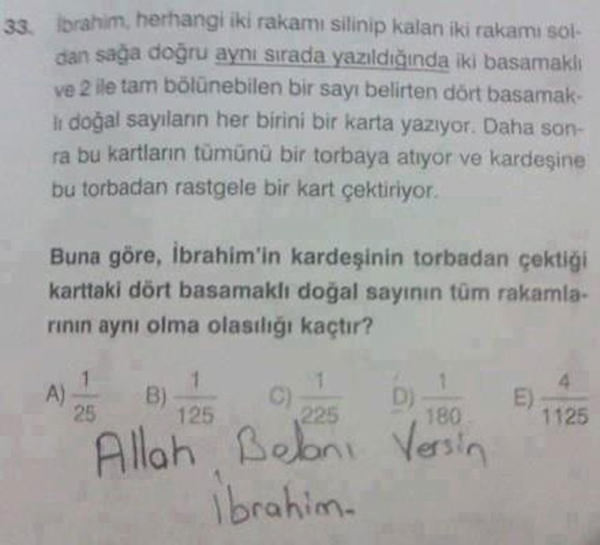 33. İbrahim, herhangi iki rakamı silinip kalan iki rakamı sol-
dan sağa doğru aynı sırada yazıldığında iki basamaklı
ve 2 ile tam bölünebilen bir sayı belirten dört basamak-
lı doğal sayıların her birini bir karta yazıyor. Daha son-
ra bu kartların tümünü bir torbaya atıyor ve kardeşine
bu torbadan rastgele bir kart çektiriyor.
Buna göre, İbrahim'in kardeşinin torbadan çektiği
karttaki dört basamaklı doğal sayının tüm rakamla-
rının aynı olma olasılığı kaçtır?
A) 1/25 B) 1/125 C) 1/225 D) 1/180 E) 4/1125
Allah Belanı Versin
İbrahim.